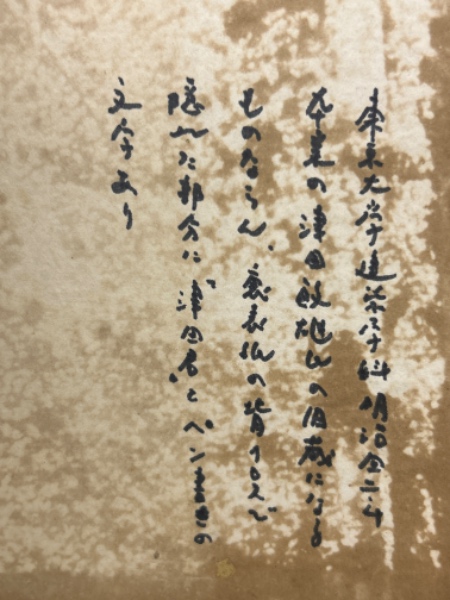 東京大学建築学科明治四二年
卒業の津田敏雄氏の旧蔵になる
ものならん、裏表紙の背クロスで
隠れた部分に“津田君”とペン書きの
文字あり